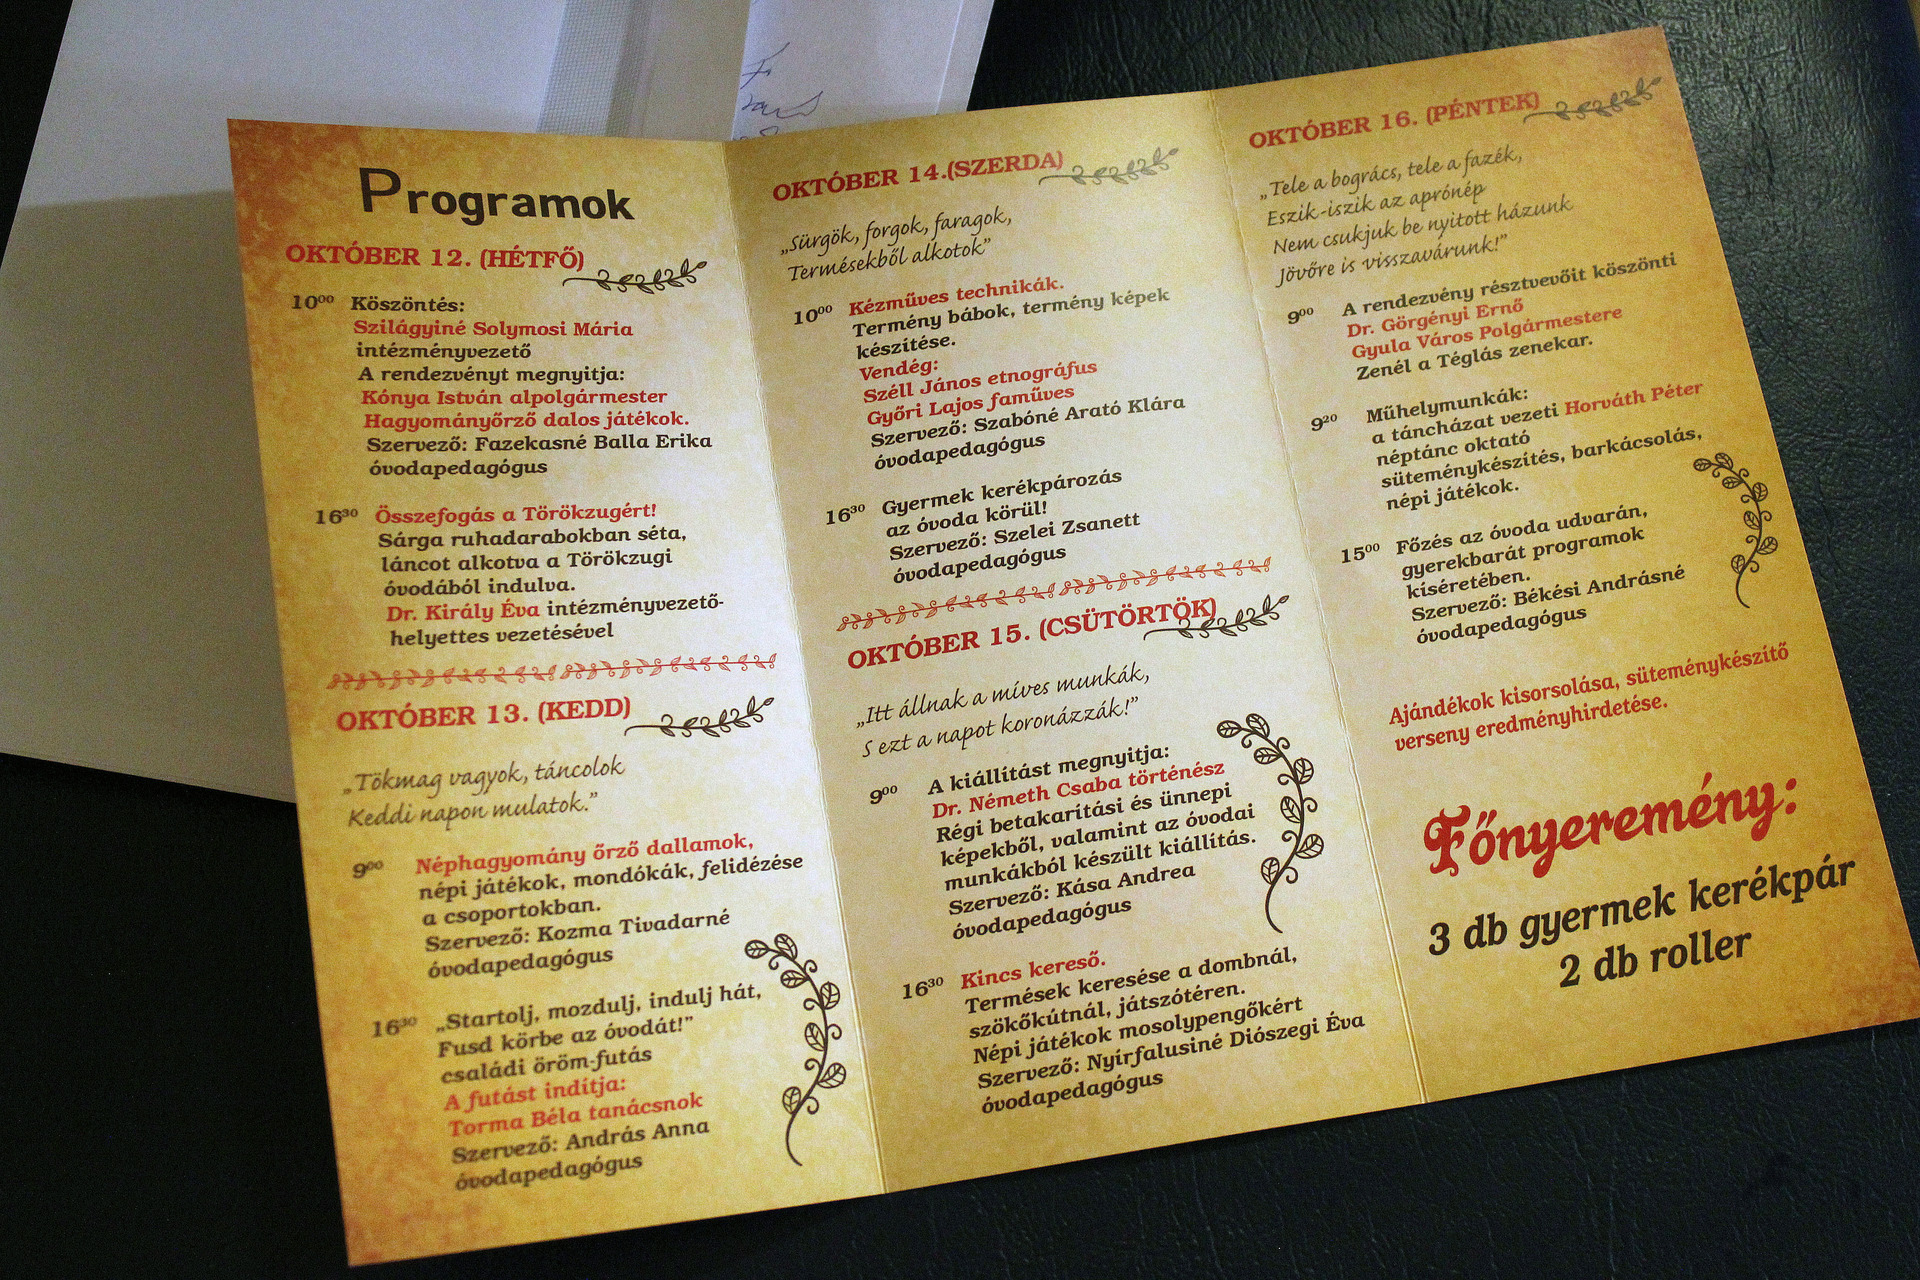 Programok
OKTÓBER 12. (HÉTFŐ)
10⁰⁰ Köszöntés:
Szilágyiné Solymosi Mária
intézményvezető
A rendezvényt megnyitja:
Kónya István alpolgármester
Hagyományőrző dalos játékok.
Szervező: Fazekasné Balla Erika
óvodapedagógus
16³⁰ Összefogás a Törökzugért!
Sárga ruhadarabokban séta,
láncot alkotva a Törökzugi
óvodából indulva.
Dr. Király Éva intézményvezető-
helyettes vezetésével
OKTÓBER 13. (KEDD)
„Tökmag vagyok, táncolok
Keddi napon mulatok.”
9⁰⁰ Néphagyomány őrző dallamok,
népi játékok, mondókák, felidézése
a csoportokban.
Szervező: Kozma Tivadarné
óvodapedagógus
16³⁰ „Startolj, mozdulj, indulj hát,
Fusd körbe az óvodát!”
családi öröm-futás
A futást indítja:
Torma Béla tanácsnok
Szervező: András Anna
óvodapedagógus
OKTÓBER 14.(SZERDA)
„Sürgök, forgok, faragok,
Termésekből alkotok”
10⁰⁰ Kézműves technikák.
Termény bábok, termény képek
készítése.
Vendég:
Széll János etnográfus
Győri Lajos faműves
Szervező: Szabóné Arató Klára
óvodapedagógus
16³⁰ Gyermek kerékpározás
az óvoda körül!
Szervező: Szelei Zsanett
óvodapedagógus
OKTÓBER 15. (CSÜTÖRTÖK)
„Itt állnak a míves munkák,
S ezt a napot koronázzák!”
9⁰⁰ A kiállítást megnyitja:
Dr. Németh Csaba történész
Régi betakarítási és ünnepi
képekből, valamint az óvodai
munkákból készült kiállítás.
Szervező: Kása Andrea
óvodapedagógus
16³⁰ Kincs kereső.
Termések keresése a dombnál,
szökőkútnál, játszótéren.
Népi játékok mosolypengőkért
Szervező: Nyírfalusiné Diószegi Éva
óvodapedagógus
OKTÓBER 16. (PÉNTEK)
„Tele a bogrács, tele a fazék,
Eszik-iszik az aprónép
Nem csukjuk be nyitott házunk
Jövőre is visszavárunk!”
9⁰⁰ A rendezvény résztvevőit köszönti
Dr. Görgényi Ernő
Gyula Város Polgármestere
Zenél a Téglás zenekar.
9²⁰ Műhelymunkák:
a táncházat vezeti Horváth Péter
néptánc oktató
süteménykészítés, barkácsolás,
népi játékok.
15⁰⁰ Főzés az óvoda udvarán,
gyerekbarát programok
kíséretében.
Szervező: Békési Andrásné
óvodapedagógus
Ajándékok kisorsolása, süteménykészítő
verseny eredményhirdetése.
Főnyeremény:
3 db gyermek kerékpár
2 db roller